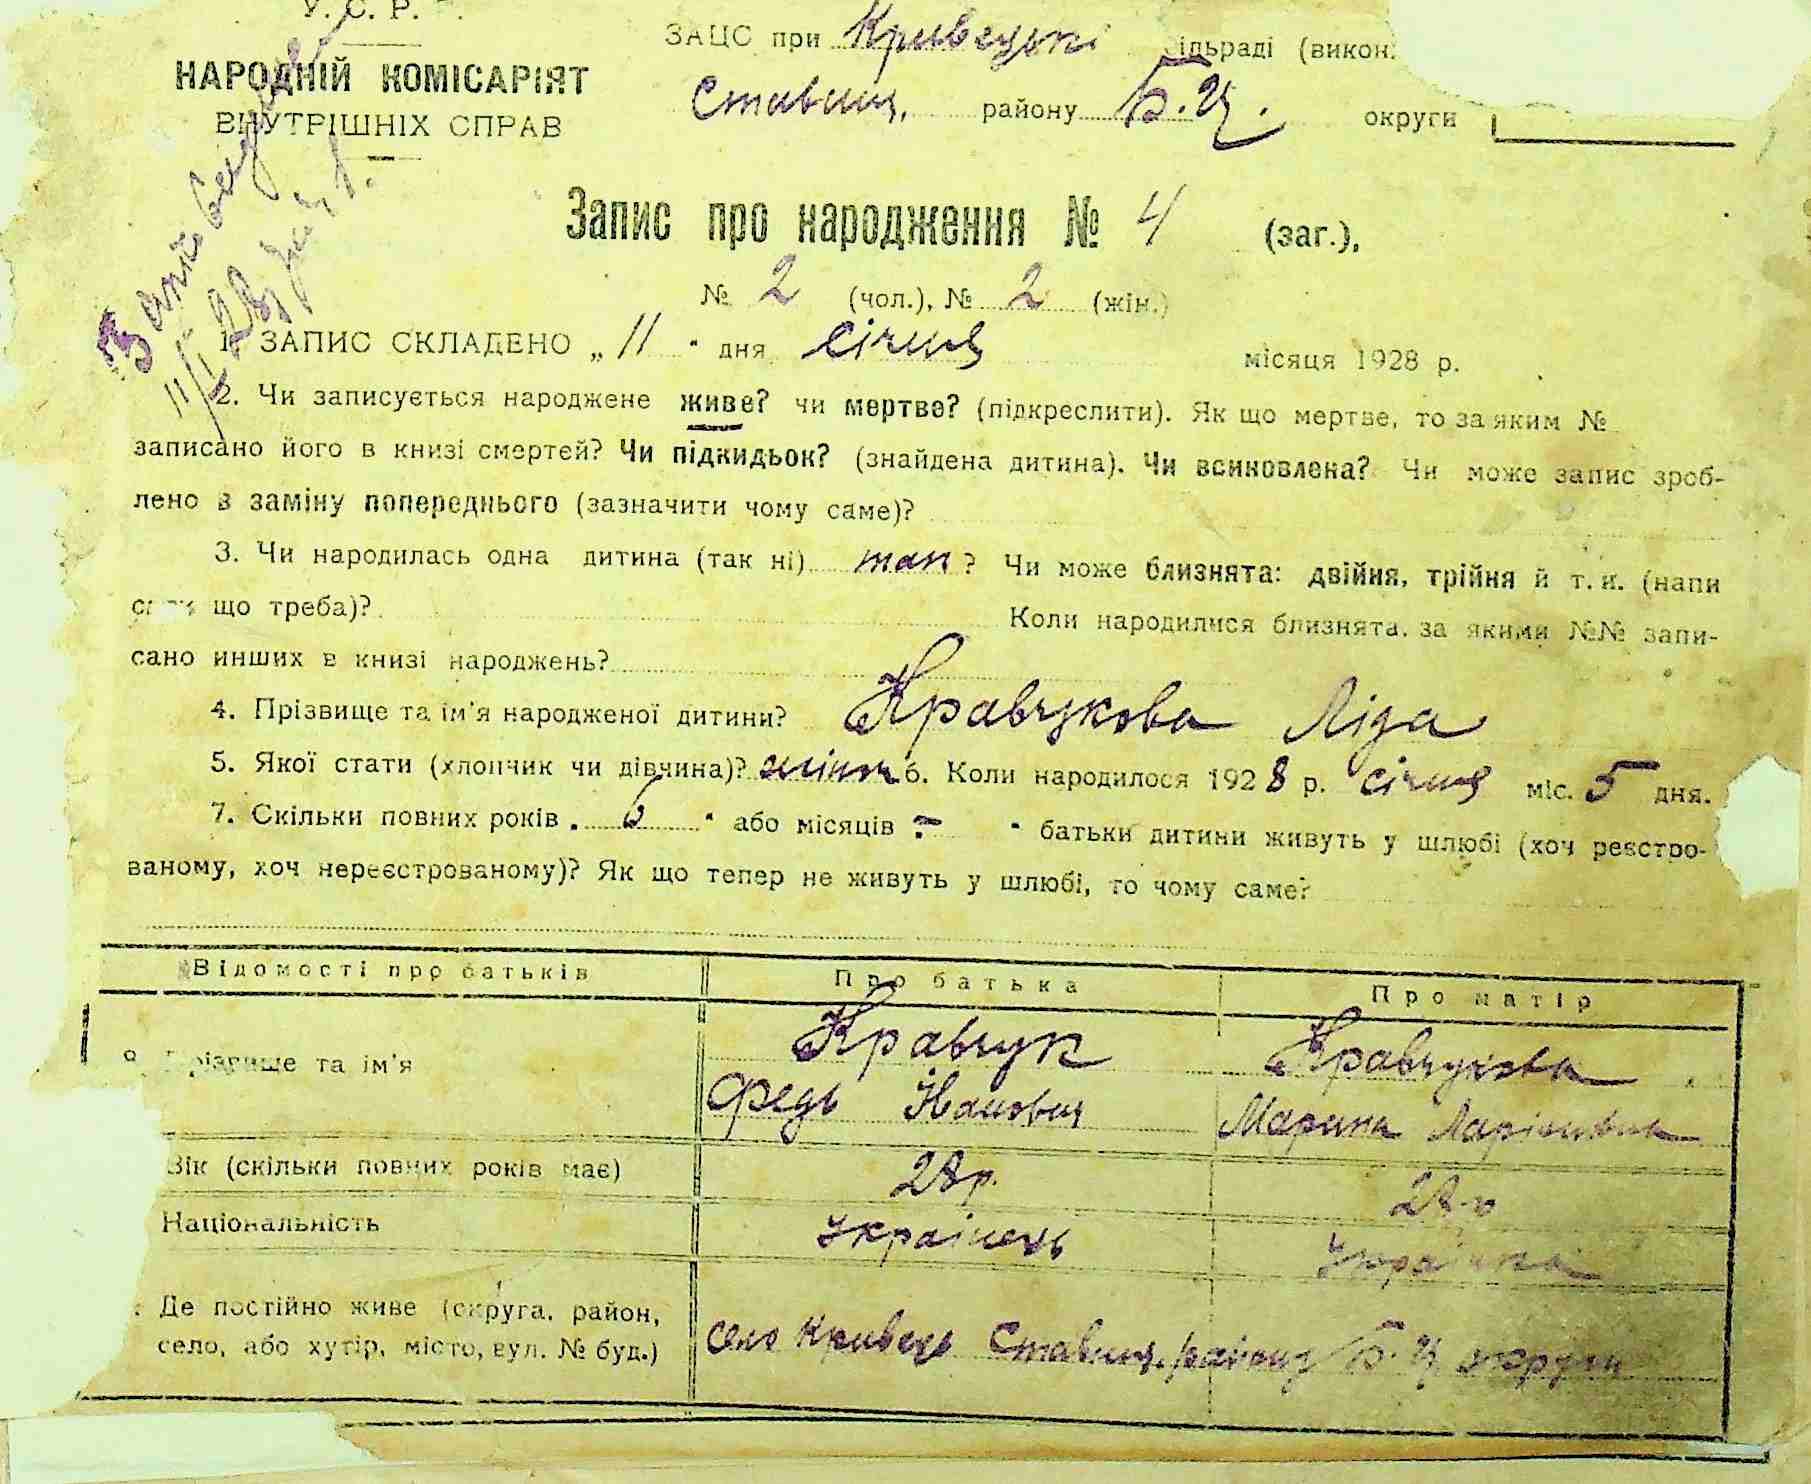 У. С. Р. Р.
НАРОДНІЙ КОМІСАРІЯТ
ВНУТРІШНІХ СПРАВ
ЗАЦС при Кривецькі сільраді (викон.
Ставищ. району Б. Ц. округи
Запис про народження № 4 (заг.),
№ 2 (чол.), № 2 (жін.)
11/I 28
1. ЗАПИС СКЛАДЕНО „ 11 " дня січня місяця 1928 р.
2. Чи записується народжене живе? чи мертве? (підкреслити). Як що мертве, то за яким №
записано його в книзі смертей? Чи підкидьок? (знайдена дитина). Чи всиновлена? Чи може запис зроб-
лено в заміну попереднього (зазначити чому саме)?
3. Чи народилась одна дитина (так ні) так ? Чи може близнята: двійня, трійня й т. и. (напи
сати що треба)? Коли народилися близнята, за якими №№ запи-
сано инших в книзі народжень?
4. Прізвище та ім'я народженої дитини? Кравчукова Ліда
5. Якої стати (хлопчик чи дівчина)? жіноч 6. Коли народилося 1928 р. січня міс. 5 дня.
7. Скільки повних років „ 6 " або місяців „ - " батьки дитини живуть у шлюбі (хоч реєстро-
ваному, хоч нереєстрованому)? Як що тепер не живуть у шлюбі, то чому саме?
Відомості про батьків Про батька Про матір
8. Прізвище та ім'я Кравчук Кравчукова
Федь Иванович Марина
Вік (скільки повних років має) 28 р. 28 р
Національність Українець Українка
Де постійно живе (округа, район,
село, або хутір, місто, вул. № буд.) село Кривець Ставищ. району Б. Ц. округи